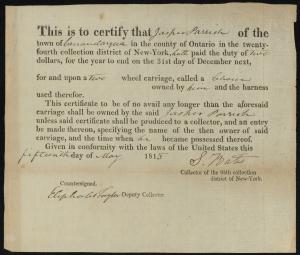 This is to certify that Jasper Parrish of the
town of Canandaigua in the county of Ontario in the twenty-
fourth collection district of New-York, hath paid the duty of two
dollars, for the year to end on the 31st day of December next,
for and upon a two wheel carriage, called a Chaise
owned by him and the harness
used therefor.
This certificate to be of no avail any longer than the aforesaid
carriage shall be owned by the said Jasper Parrish
unless said certificate shall be produced to a collector, and an entry
be made thereon, specifying the name of the then owner of said
carriage, and the time when he became possessed thereof.
Given in conformity with the laws of the United States this
fifteenth day of May 1815
S.
Collector of the 24th collection
district of New-York.
Countersigned,
Deputy Collector.